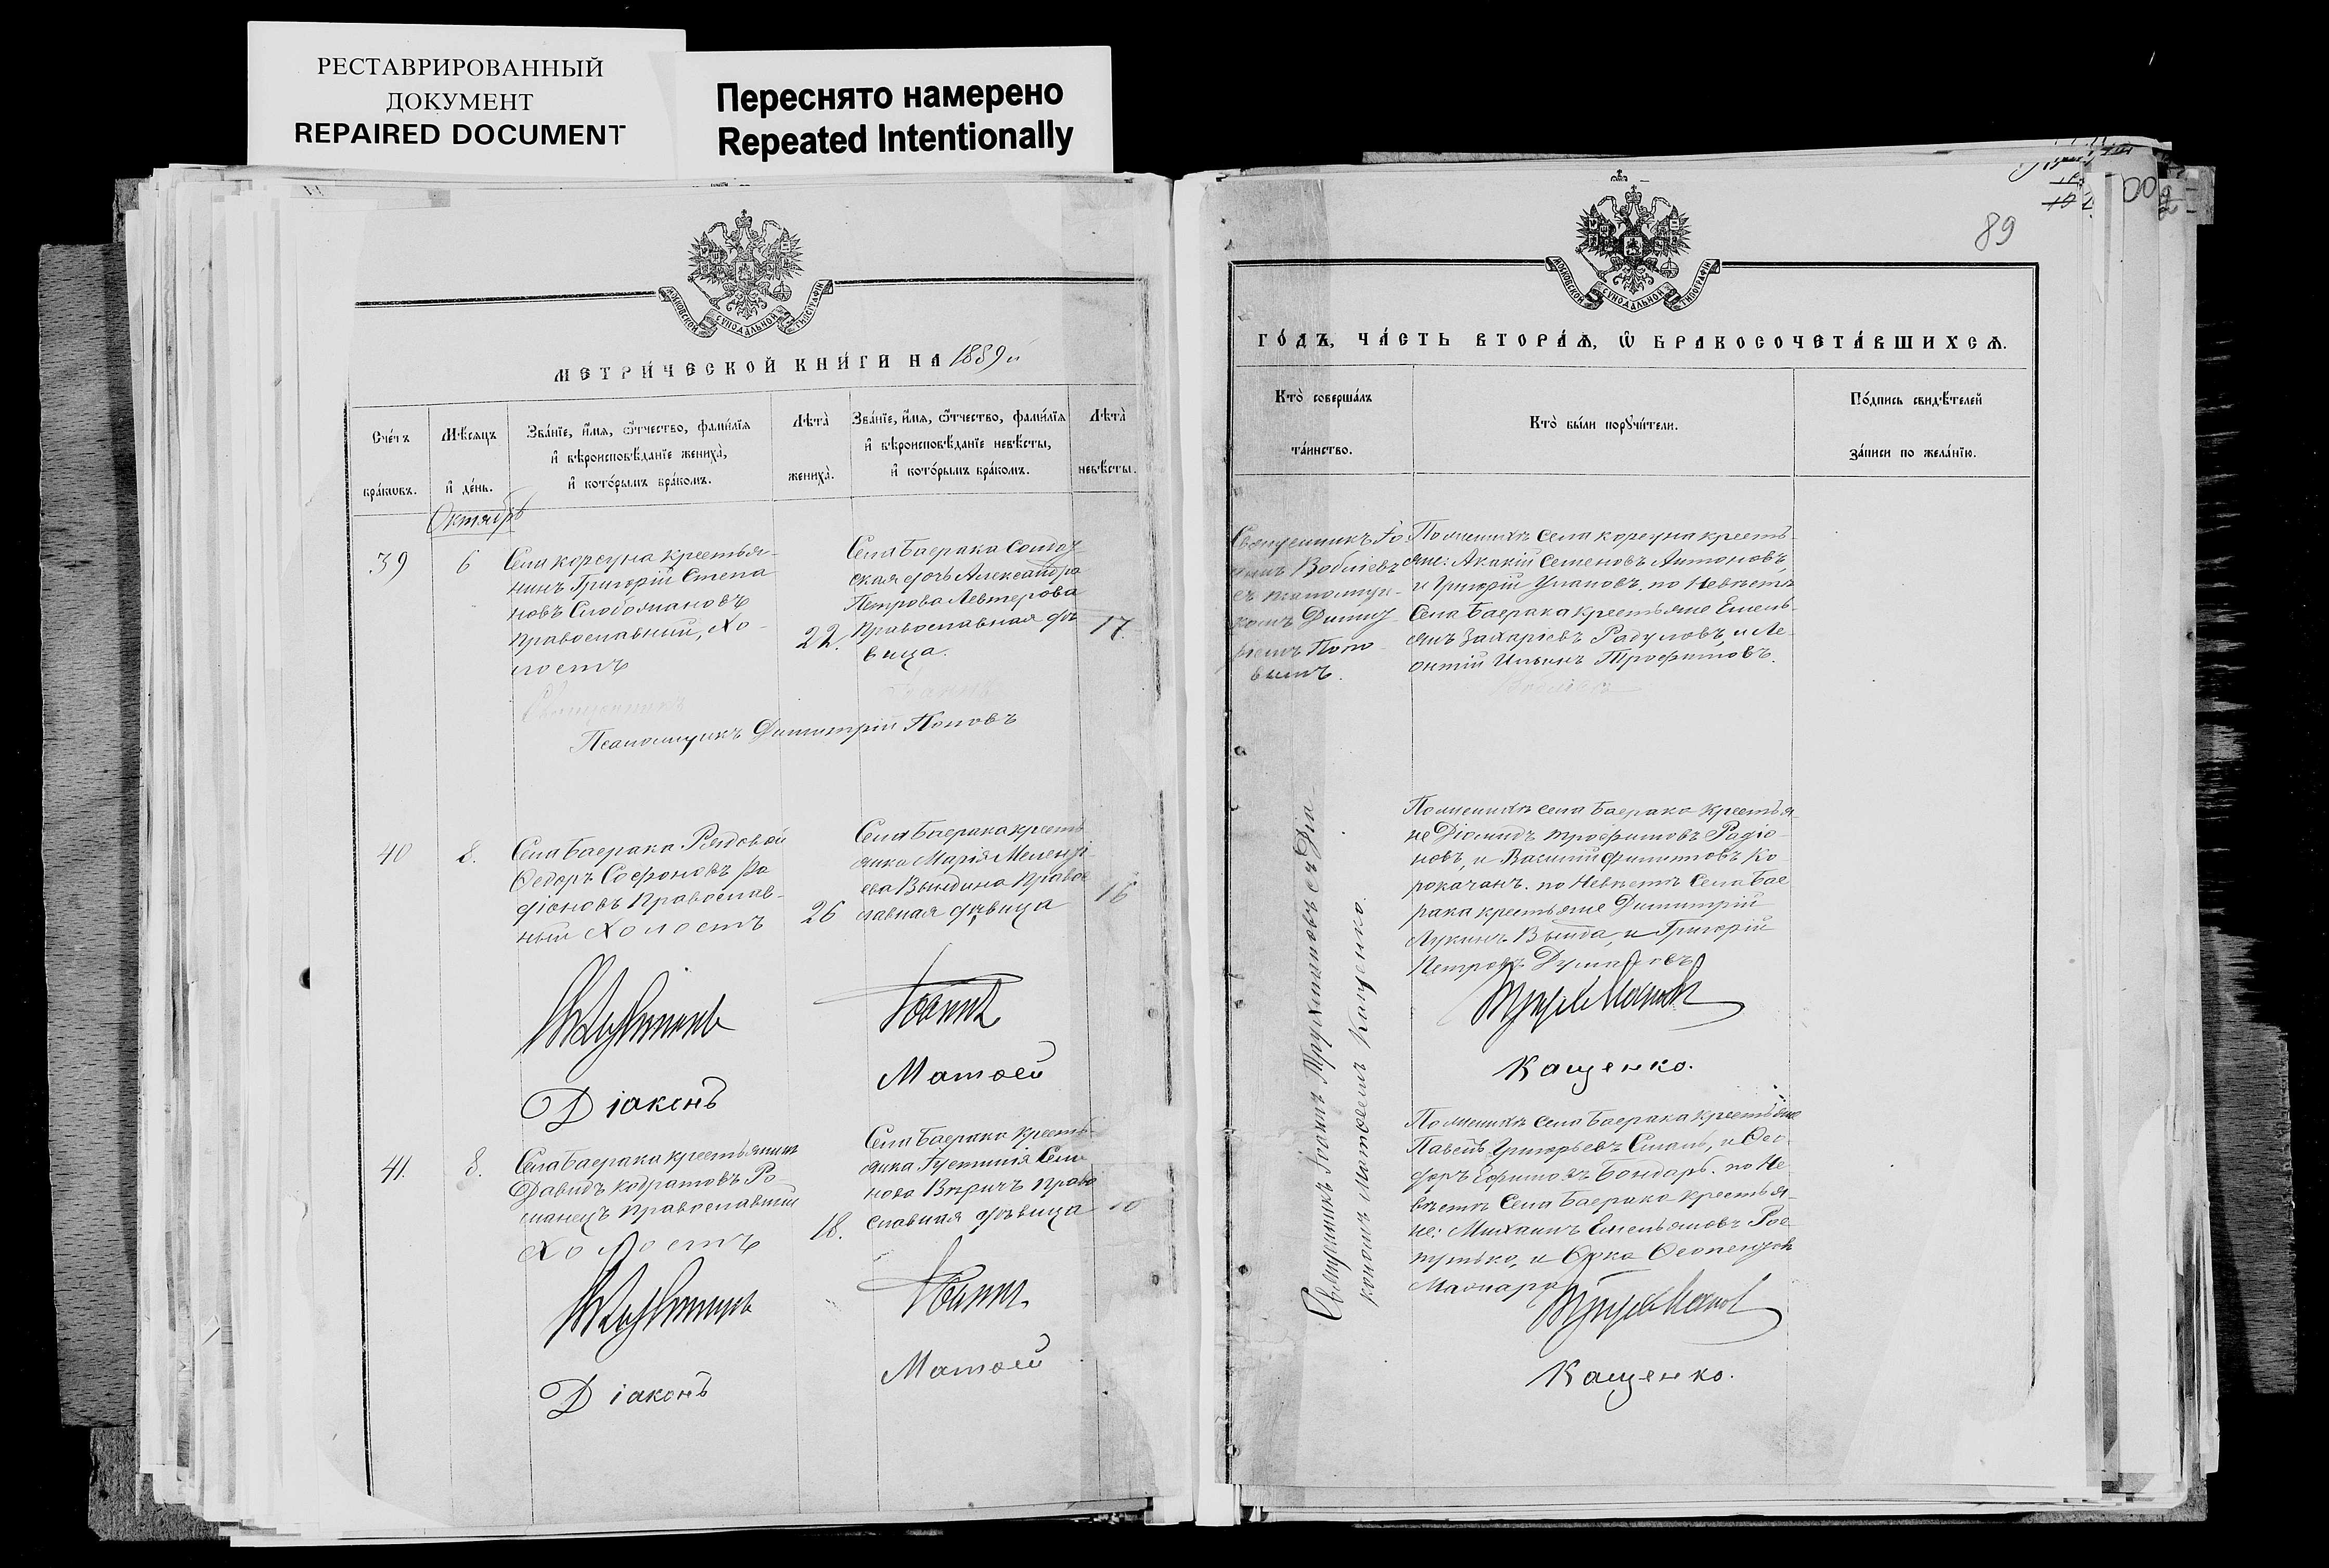 РЕСТАВРИРОВАННЫЙ
ДОКУМЕНТ
REPAIRED DOCUMENT
Переснято намерено
Repeated Intentionally
МОСКОВСКОЙ СУНОДАЛЬНОЙ ТИПОГРАФІИ
МЕТРИ́ЧЕСКОЙ КНИ́ГИ НА 1889 й
Сче́тъ
бра́ковъ.
Мѣ́сяцъ
и҆ де́нь.
Зва́нїе, и҆́мѧ, ѻ҆́тчество, фами́лїѧ
и҆ вѣроисповѣ́данїе жениха̀,
и҆ кото́рымъ бра́комъ.
Лѣ́та̀
жениха̀.
Зва́нїе, и҆́мѧ, ѻ҆́тчество, фами́лїѧ
и҆ вѣроисповѣ́данїе невѣ́сты,
и҆ кото́рымъ бра́комъ.
Лѣ́та̀
невѣ́сты.
Октябрь
39
6
Села Корсуна крестья-
нинъ Григорій Степа
новъ Слободяновъ
православный, хо-
лостъ
22.
Села Баерака Солдат
ская дочь Александра
Петрова Левтерова
Православная дѣ
вица.
17.
Священникъ
Псаломщикъ Димитрій Поповъ
40
8.
Села Баерака Рядовой
Ѳедоръ Софроновъ Ра
діоновъ Православ-
ный Холостъ
26
Села Баерака кресть
янка Марія
Вындина Право
славная дѣвица
16
Іоаннъ
Діаконъ
Матѳей
41.
8.
Села Баерака крестьянинъ
Давидъ Кодратовъ Ро
манецъ Православный
Холостъ
18.
Села Баерака кресть-
янка
нова право
славная дѣвица
Іоаннъ
Діаконъ
Матѳей
89
МОСКОВСКОЙ СУНОДАЛЬНОЙ ТИПОГРАФІИ
ГО́ДЪ, ЧА́СТЬ ВТОРА́Ѧ, Ѽ БРАКОСОЧЕТА́ВШИХСѦ.
Кто̀ соверша́лъ
та́инство.
Кто̀ бы́ли порꙋчи́тели.
По́дпись свидѣ́телей
за́писи по жела́нїю.
Священникъ Іо
съ псаломщи-
комъ Димит
ріемъ Попо
вымъ.
По женихѣ села Корсуна кресть-
яне: Акакій Семеновъ Антоновъ,
и Григорій Улановъ. по Невѣстѣ
Села Баерака крестьяне Емель-
янъ Захаріевъ Радуловъ, и Ле-
онтій Ильинъ Трофимовъ.
Священникъ Іоаннъ Трухмановъ съ Діа-
кономъ Матѳеемъ Кащенко.
По женихѣ села Баерака крестья
не Діомидъ Трофимовъ Радіо-
новъ, и Василій Филиповъ Ко
рокачанъ. по Невѣстѣ Села Бае
рака крестьяне Димитрій
Лукинъ Вында, и Григорій
Петровъ
Кащенко.
По женихѣ села Баерака крестьяне
Павелъ Григорьевъ и Ѳео-
доръ Ефимовъ Бондарь. по Не-
вѣстѣ Села Баерака крестья-
не: Михаилъ Емельяновъ
и
Кащенко.